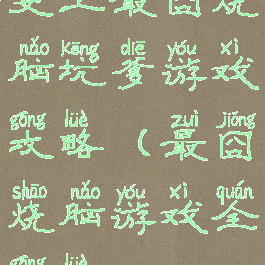 史上最囧烧
nǎo kēng diē yóu xì
脑坑爹游戏
gōng lüè zuì jiǒng
攻略（最囧
shāo nǎo yóu xì quán
烧脑游戏全
gōng lüè